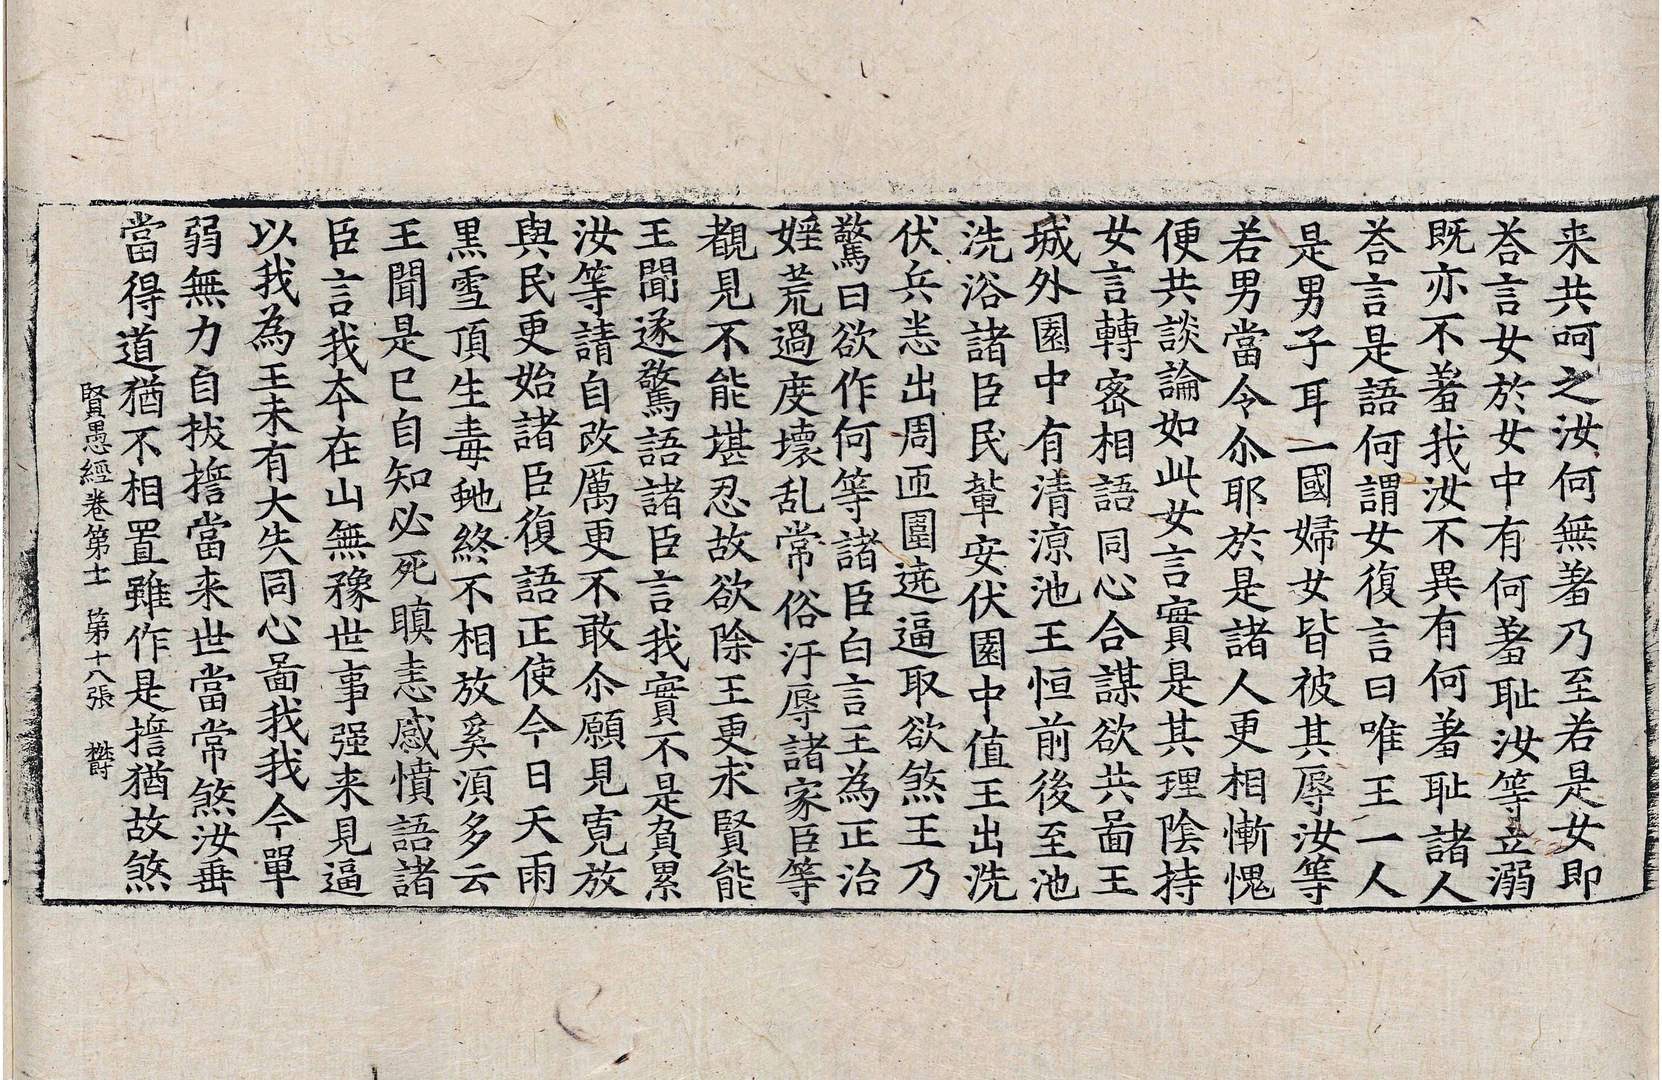 来共呵之汝何無羞乃至若是女即
荅言女於女中有何羞耻汝等立溺
既亦不羞我汝不異有何羞耻諸人
荅言是語何謂女復言曰唯王一人
是男子耳一國婦女皆被其辱汝等
若男當令尒耶於是諸人更相慚愧
便共談論如此女言實是其理陰持
女言轉宻相語同心合謀欲共啚王
城外園中有清涼池王恒前後至池
洗浴諸臣民輦安伏園中值王出洗
伏兵恙出周匝圍遶逼取欲煞王乃
驚曰欲作何等諸臣白言王為正治
婬荒過度壞乱常俗汙辱諸家臣等
覩見不能堪忍故欲除王更求賢能
王聞遂驚語諸臣言我實不是負累
汝等請自改厲更不敢尒願見寬放
與民更始諸臣復語正使今日天雨
黒雪頂生毒虵終不相放奚湏多云
王聞是已自知必死瞋恚感憤語諸
臣言我夲在山無豫世事强来見逼
以我為王未有大失同心啚我我今單
弱無力自拔𢴃當来世當常煞汝垂
當得道猶不相置雖作是𢴃猶故煞
賢愚經卷第十一 第十八張 欝